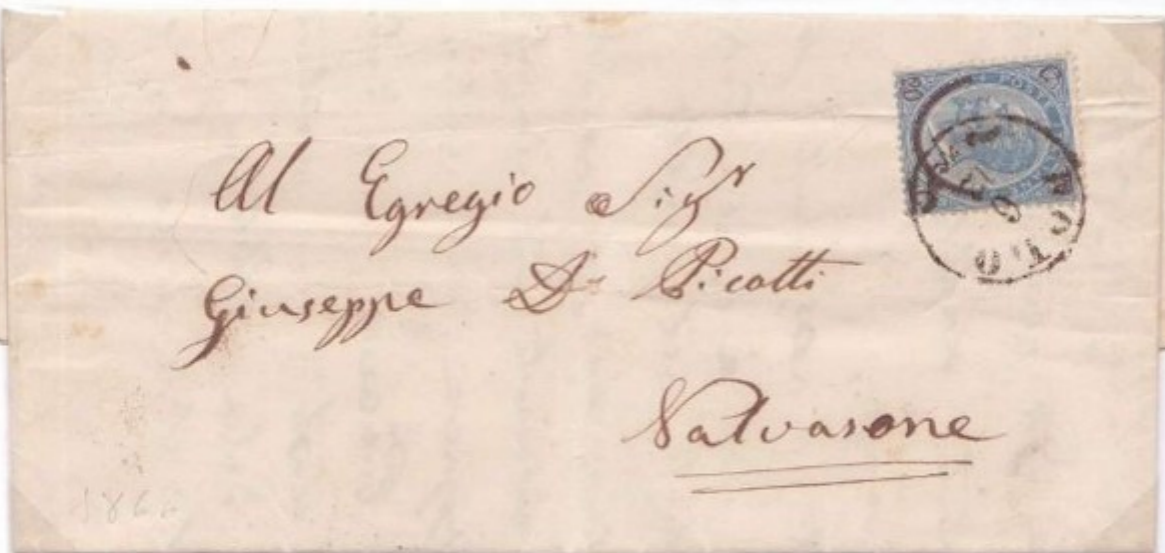 Al Egregio Sigr
Giuseppe Dr Picotti
Valvasone
20